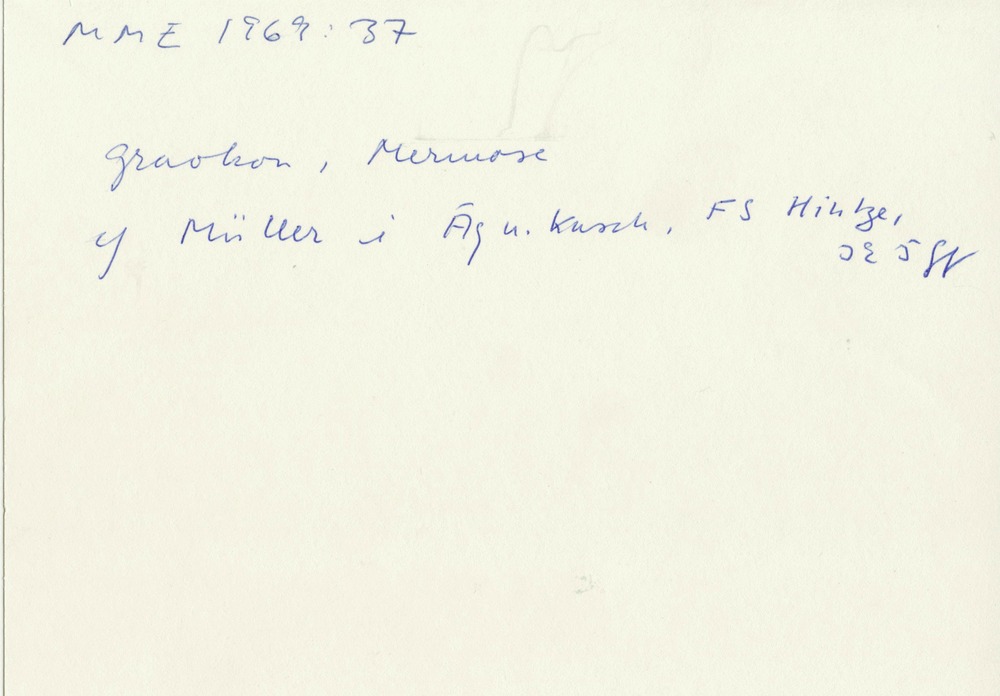 MME 1969:37
gravkon, Mermose
cf Müller i Äg u. Kusch, FS Hintze,
325 ff